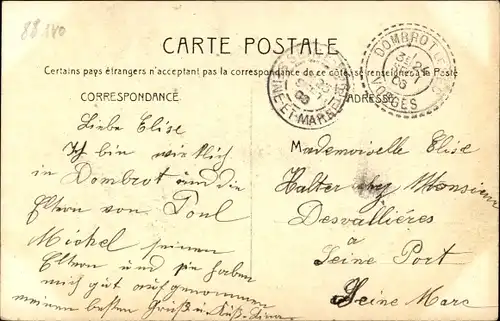 88 IVO
CARTE POSTALE
Certains pays étrangers n'acceptant pas la correspondance de ce côté, se renseigner à la Poste
CORRESPONDANCE
ADRESSE
DOMBROT
VOSGES
SEINE-ET-MARNE
Liebe Elise
Ich bin wirklich
in Dombrot und die
Eltern von Poul
Michel seinen
Eltern und sie haben
mich gut aufgenommen
meinen besten Gruß u. Kuß
Mademoiselle Elise
Halter chy Monsieur
Desvallières
a
Seine Port
Seine Marc